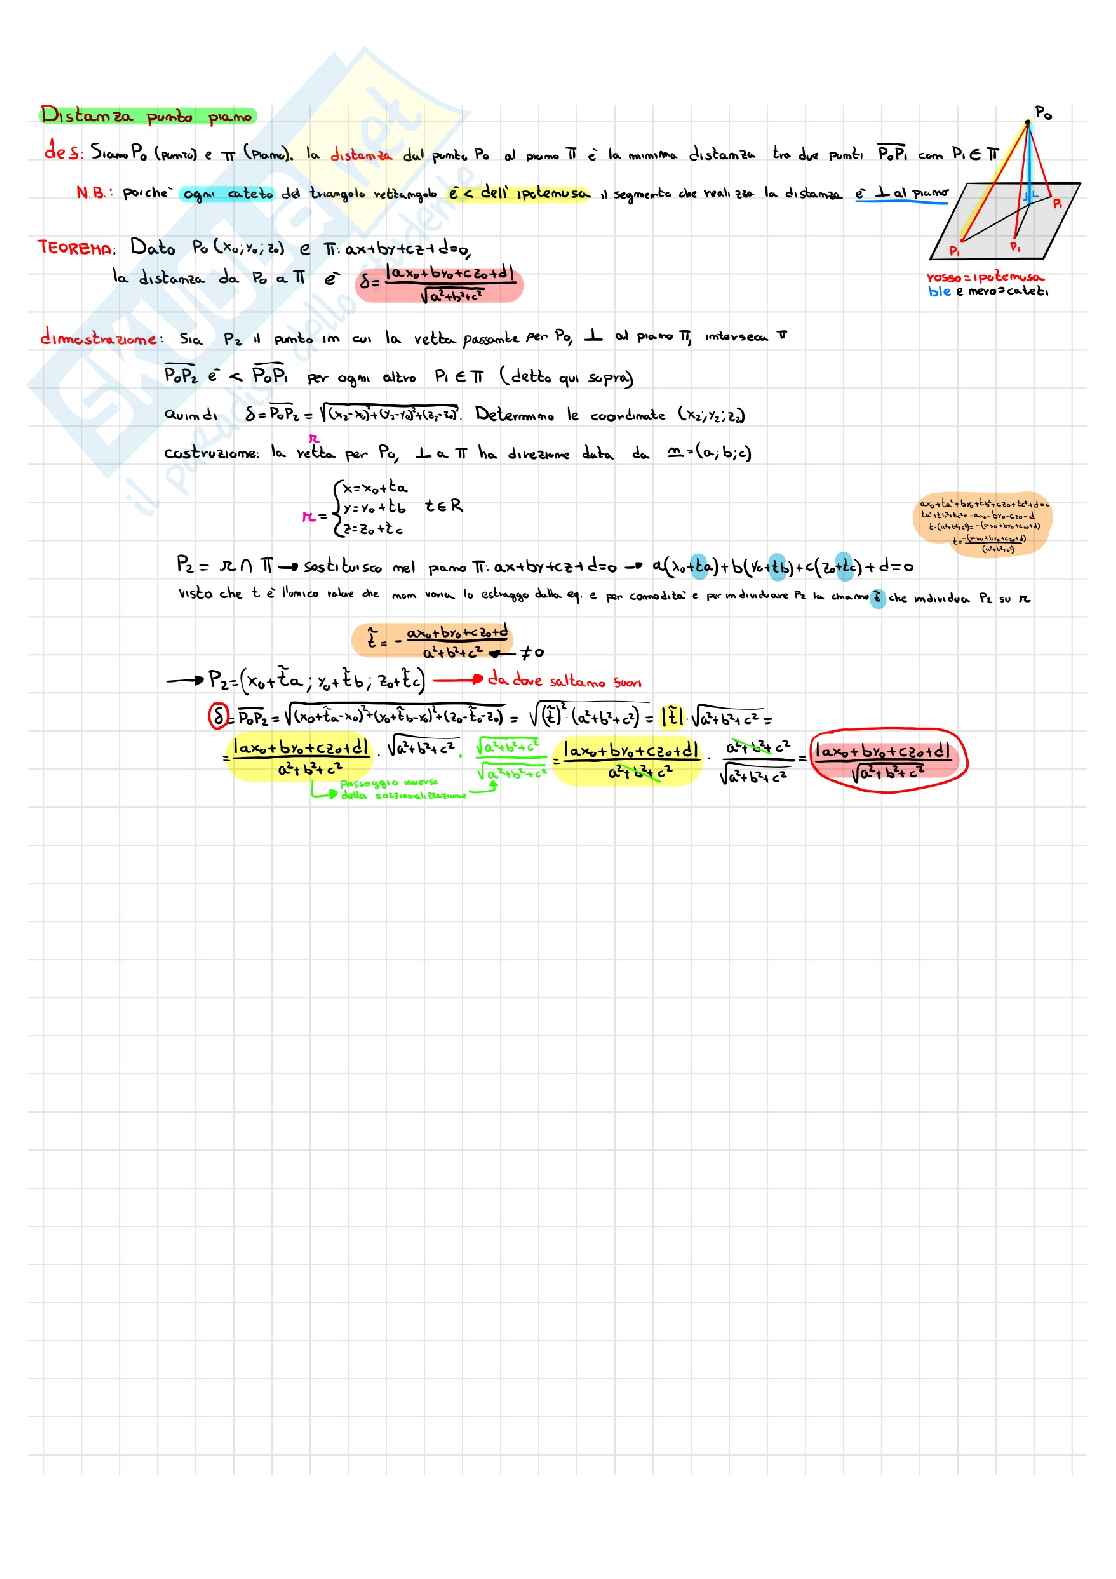 Distanza punto piano
P₀
def: Siano P₀ (punto) e π (piano). la distanza dal punto P₀ al piano π è la minima distanza tra due punti P₀P₁ con P₁ ∈ π
N.B.: poichè ogni cateto del triangolo rettangolo è < dell'ipotenusa il segmento che realizza la distanza è ⊥ al piano
P₁
P₁
P₁
rosso = ipotenusa
ble e nero = cateti
TEOREMA: Dato P₀ (x₀; y₀; z₀) e π: ax+by+cz+d=0,
la distanza da P₀ a π è δ = |ax₀+by₀+cz₀+d| / √(a²+b²+c²)
dimostrazione: Sia P₂ il punto in cui la retta passante per P₀, ⊥ al piano π, interseca π
P₀P₂ è < P₀P₁ per ogni altro P₁ ∈ π (detto qui sopra)
quindi δ = P₀P₂ = √((x₂-x₀)²+(y₂-y₀)²+(z₂-z₀)²). Determino le coordinate (x₂; y₂; z₂)
r
costruzione: la retta per P₀, ⊥ a π ha direzione data da n = (a; b; c)
r = { x = x₀+ta
y = y₀+tb t ∈ R
z = z₀+tc
ax₀+ta²+by₀+tb²+cz₀+tc²+d=0
ta²+tb²+tc² = -ax₀-by₀-cz₀-d
t·(a²+b²+c²) = -(ax₀+by₀+cz₀+d)
t = -(ax₀+by₀+cz₀+d) / (a²+b²+c²)
P₂ = r ∩ π → sostituisco nel piano π: ax+by+cz+d=0 → a(x₀+ta)+b(y₀+tb)+c(z₀+tc)+d=0
visto che t è l'unico valore che non varia lo estraggo dalla eq. e per comodità e per individuare P₂ la chiamo t̃ che individua P₂ su r
t̃ = - (ax₀+by₀+cz₀+d) / (a²+b²+c²) ← ≠0
→ P₂ = (x₀+t̃a; y₀+t̃b; z₀+t̃c) → da dove saltano fuori
δ = P₀P₂ = √((x₀+t̃a-x₀)²+(y₀+t̃b-y₀)²+(z₀-t̃c-z₀)²) = √((t̃)²·(a²+b²+c²)) = |t̃|·√(a²+b²+c²) =
= |ax₀+by₀+cz₀+d| / (a²+b²+c²) · √(a²+b²+c²) · √(a²+b²+c²) / √(a²+b²+c²) = |ax₀+by₀+cz₀+d| / (a²+b²+c²) · (a²+b²+c²) / √(a²+b²+c²) = |ax₀+by₀+cz₀+d| / √(a²+b²+c²)
passaggio inverso
della razionalizzazione